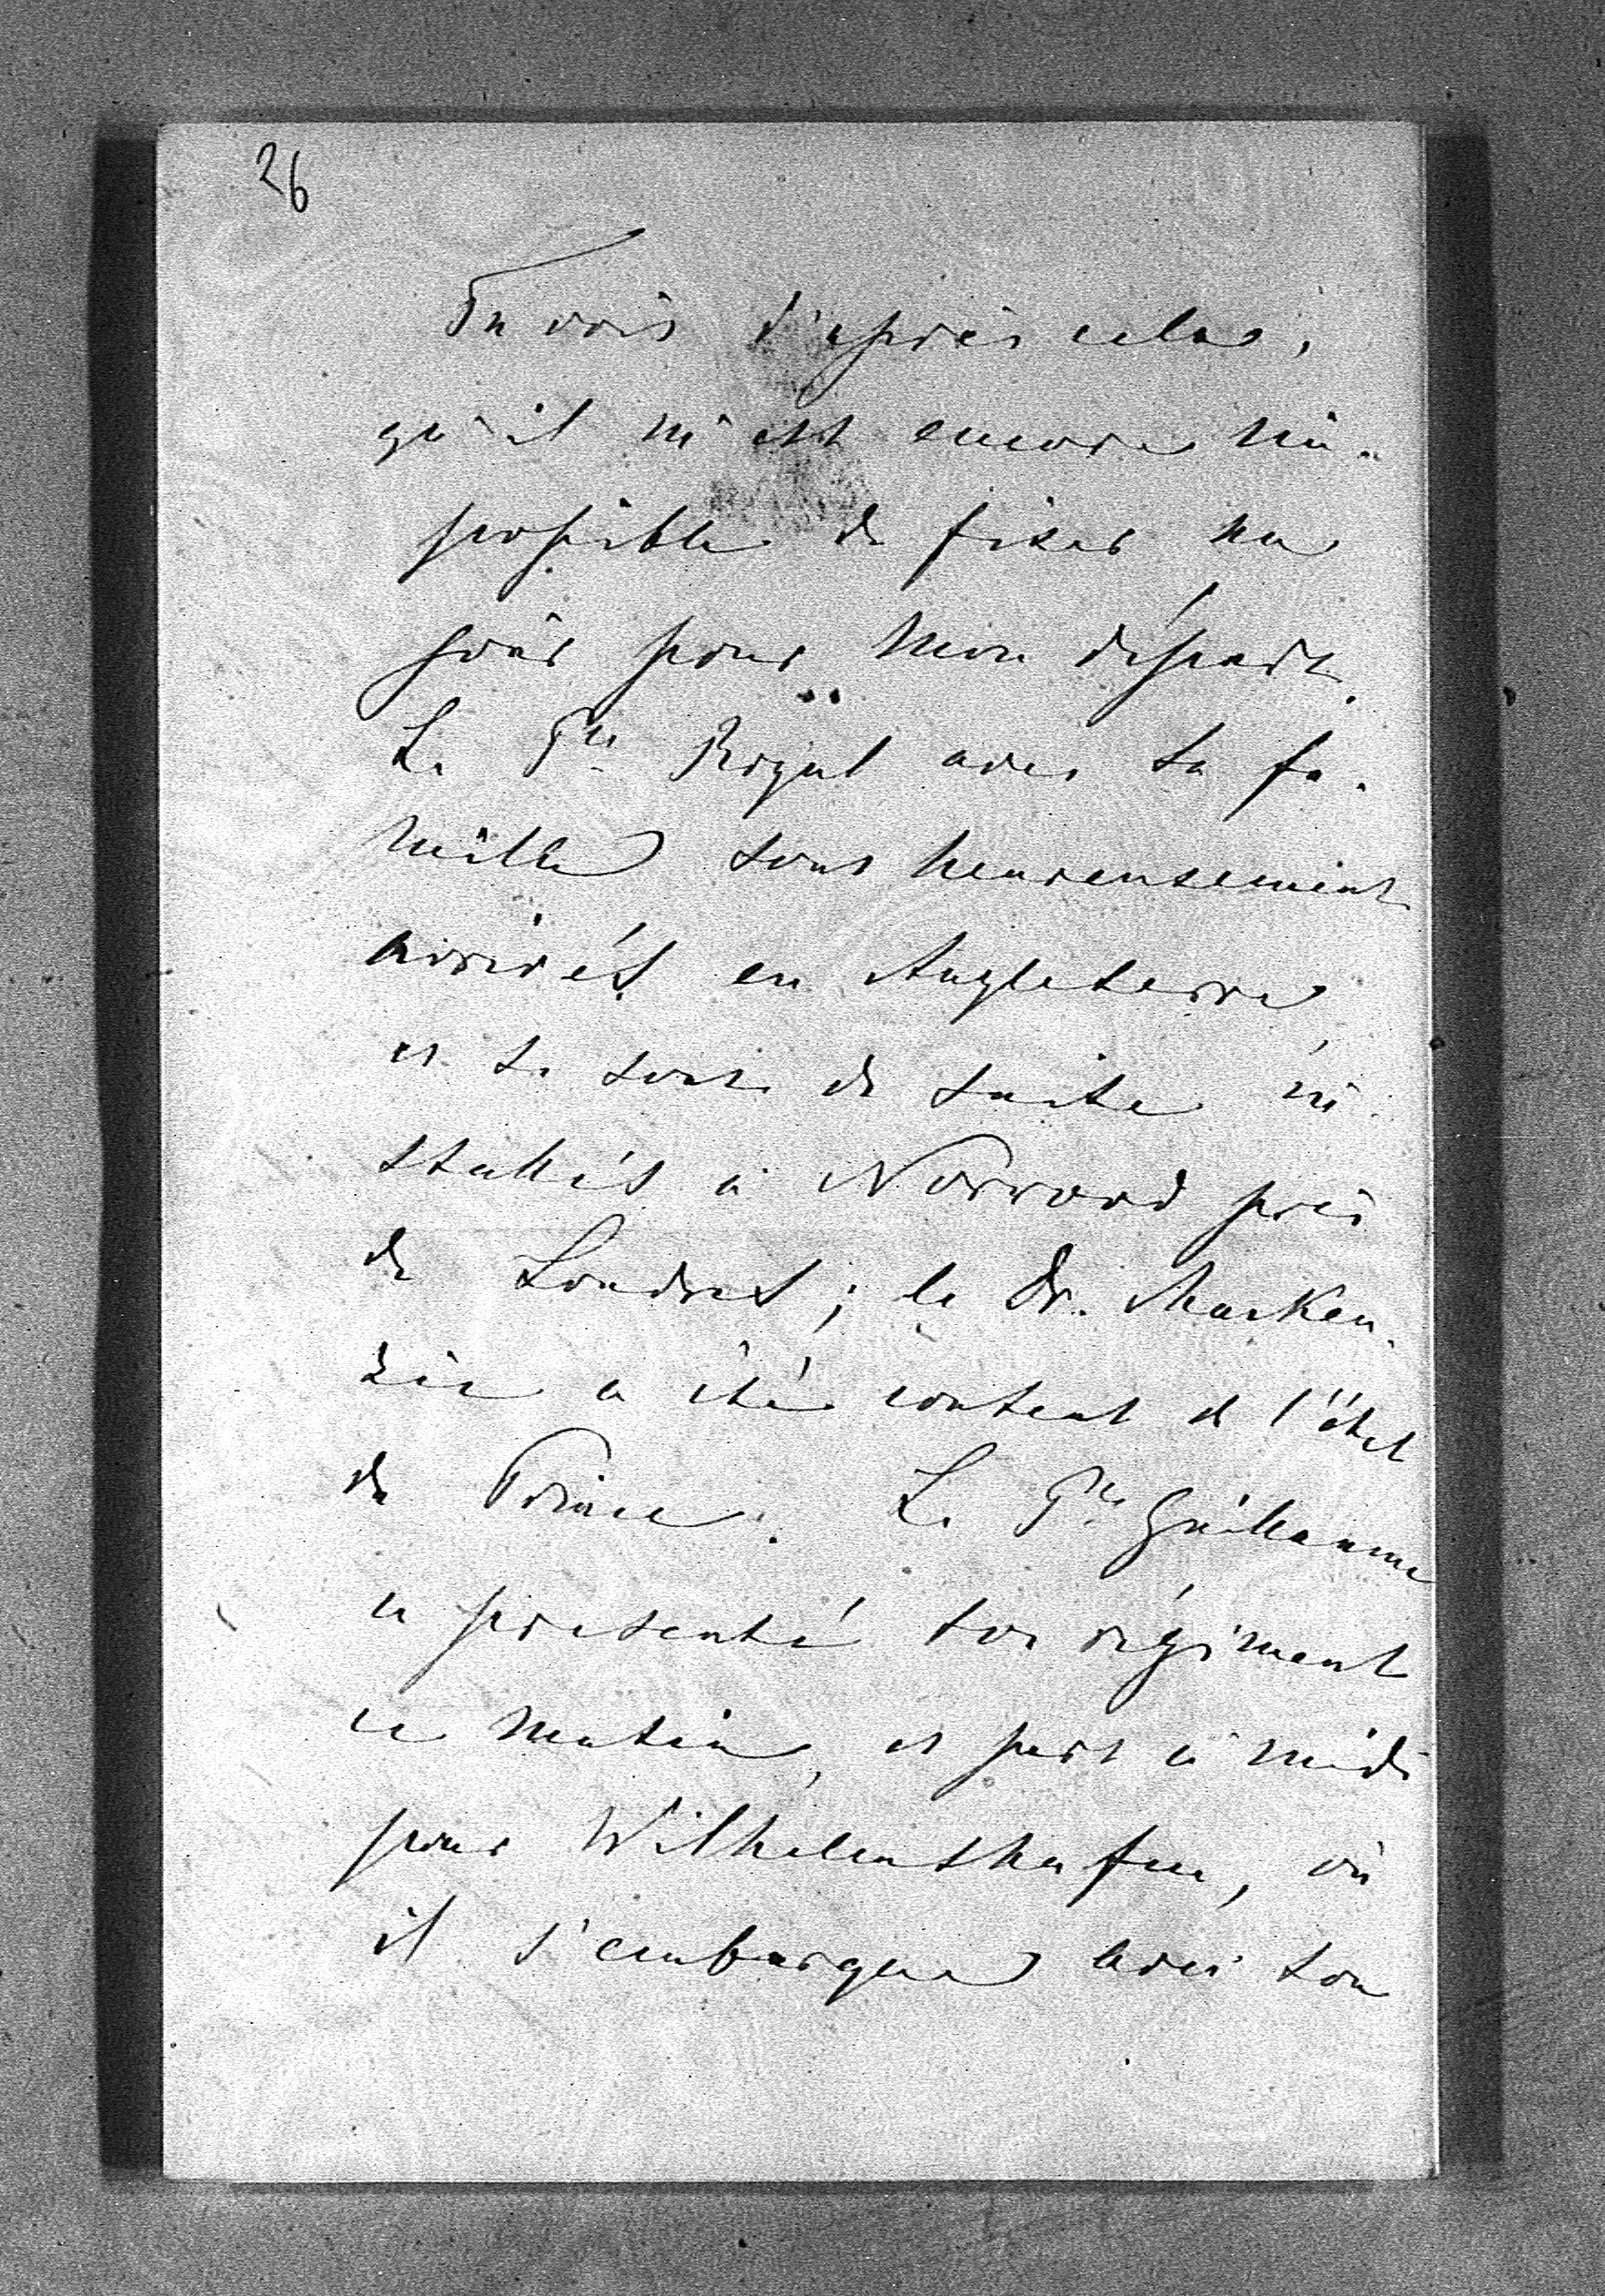 26
Tu vois d'après cela,
qu'il m'est encore im-
possible de fixer un
jour pour mon départ.
Le Pce Royal avec sa fa-
mille sont heureusement
arrivés en Angleterre,
et se sont de suite in-
stallés à Norwood près
de Londres; le Dr. Macken-
zie a été content de l'état
du Prince. Le Pce Guillaume
a présenté son régiment
ce matin, et part à midi
pour Wilhelmshafen, où
il s'embarque avec son